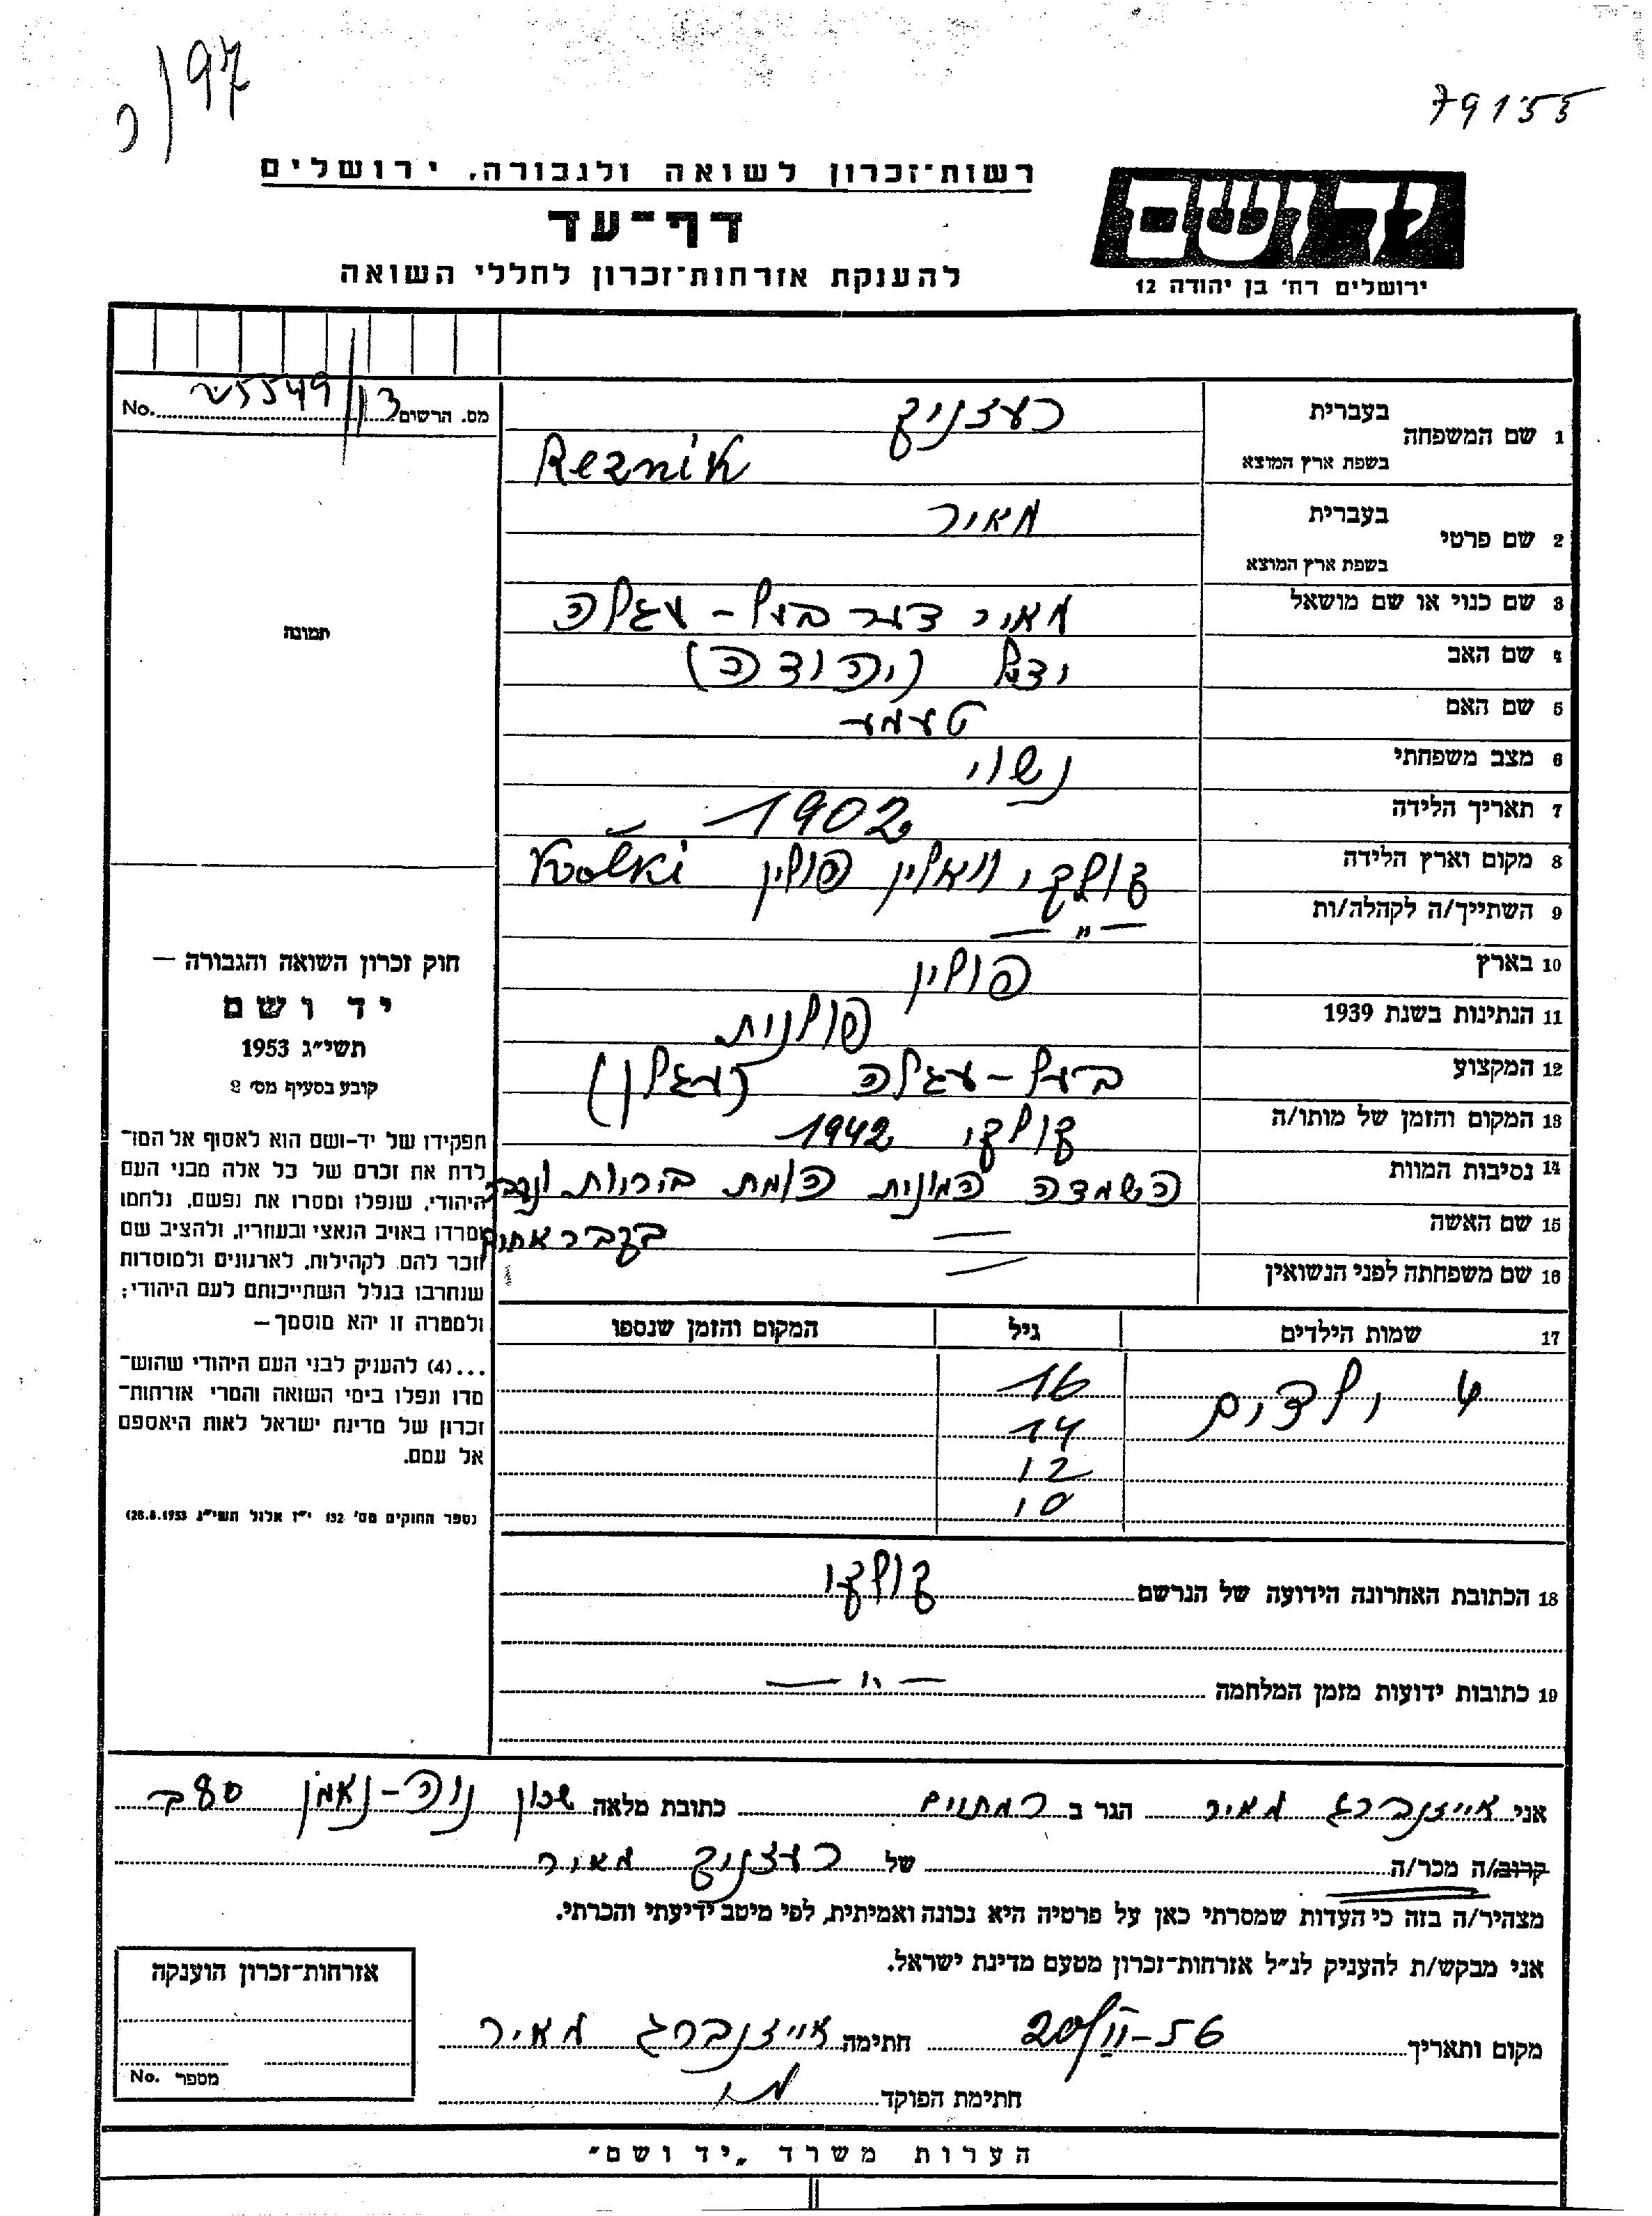 ר/97
79155
רשות־זכרון לשואה ולגבורה, ירושלים
דף־עד
להענקת אזרחות־זכרון לחללי השואה
יד ושם
ירושלים רח׳ בן יהודה 12
מס. הרשום No.
1 שם המשפחה
בעברית רעזניק
בשפת ארץ המוצא Reznik
2 שם פרטי
בעברית מאיר
בשפת ארץ המוצא
3 שם כנוי או שם מושאל מאיר דער בעל-עגלה
4 שם האב (יהודה)
5 שם האם טעמע
6 מצב משפחתי נשוי
7 תאריך הלידה 1902
8 מקום וארץ הלידה קולקי ווואלין פולין Kołki
9 השתייך/ה לקהלה/ות — " —
10 בארץ פולין
11 הנתינות בשנת 1939 פולנית
12 המקצוע בעל-עגלה (עגלן)
13 המקום והזמן של מותו/ה קולקי 1942
14 נסיבות המוות השמדה המונית הומת ביריות ונקבר
בקבר אחים
15 שם האשה —
16 שם משפחתה לפני הנשואין —
17 שמות הילדים גיל המקום והזמן שנספו
4 ילדים 16
14
12
10
18 הכתובת האחרונה הידועה של הנרשם קולקי
19 כתובות ידועות מזמן המלחמה — " —
תמונה
חוק זכרון השואה והגבורה —
יד ושם
תשי״ג 1953
קובע בסעיף מס׳ 2
תפקידו של יד-ושם הוא לאסוף אל המו־
לדת את זכרם של כל אלה מבני העם
היהודי, שנפלו ומסרו את נפשם, נלחמו
ומרדו באויב הנאצי ובעוזריו, ולהציב שם
וזכר להם, לקהילות, לארגונים ולמוסדות
שנחרבו בגלל השתייכותם לעם היהודי;
ולמטרה זו יהא מוסמך —
...(4) להעניק לבני העם היהודי שהוש־
מדו ונפלו בימי השואה והמרי אזרחות־
זכרון של מדינת ישראל לאות היאספם
אל עמם.
(ספר החוקים מס׳ 132 י״ז אלול תשי״ג 28.8.1953)
אני אייזנברג מאיר הגר ב רמתיים כתובת מלאה שכון נוה-נאמן
קרוב/ה מכר/ה של רעזניק מאיר
מצהיר/ה בזה כי העדות שמסרתי כאן על פרטיה היא נכונה ואמיתית, לפי מיטב ידיעתי והכרתי.
אני מבקש/ת להעניק לנ״ל אזרחות־זכרון מטעם מדינת ישראל.
מקום ותאריך 20/II-56 חתימה אייזנברג מאיר
חתימת הפוקד
אזרחות־זכרון הוענקה
מספר No.
הערות משרד „יד ושם״